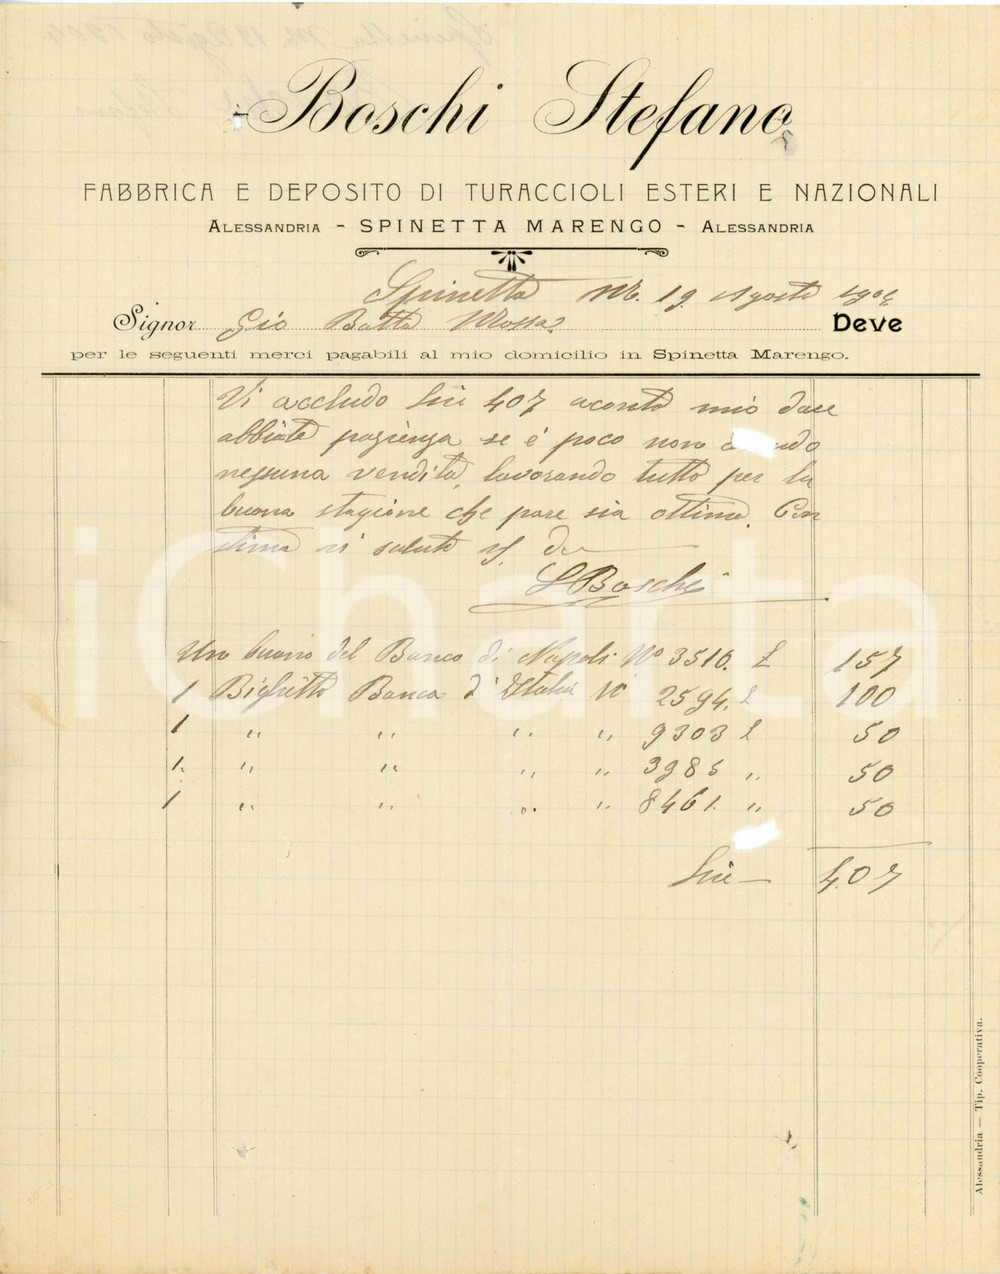 Boschi Stefano
FABBRICA E DEPOSITO DI TURACCIOLI ESTERI E NAZIONALI
ALESSANDRIA - SPINETTA MARENGO - ALESSANDRIA
Spinetta M. 19 Agosto 1904
Signor Gio Batta Mossa Deve
per le seguenti merci pagabili al mio domicilio in Spinetta Marengo.
Vi accludo Lire 407 aconto mio dare
abbiate pazienza se è poco non
nessuna vendita, lavorando tutto per la
buona stagione che pare sia ottima. Con
stima vi saluto
S Boschi
Uno buono del Banco di Napoli No 3510. L 157
1 Biglietto Banca d'Italia N 2594. L 100
1 " " " " 9303 L 50
1. " " " " 3985 " 50
1 " " " " 8461. " 50
Lire - 407
Alessandria — Tip. Cooperativa.
iCharta